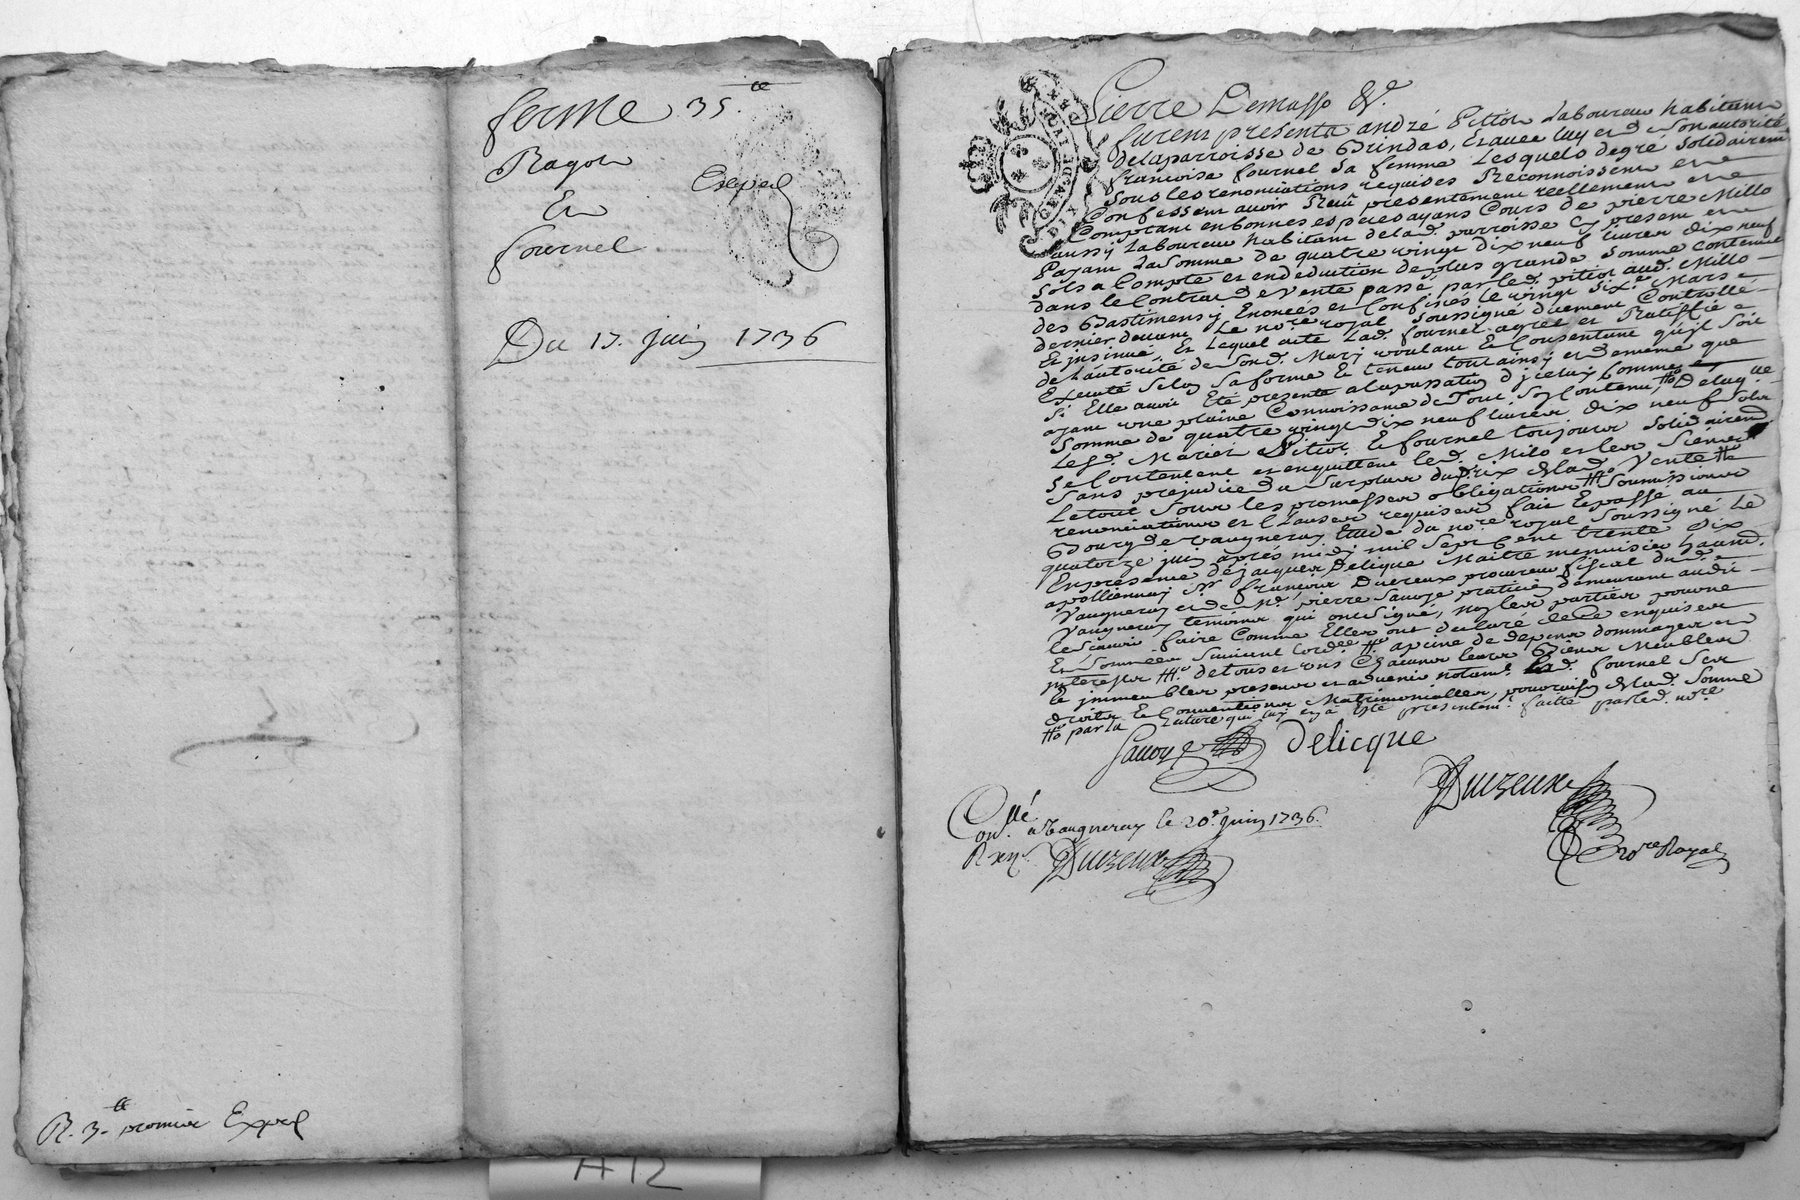 ferme 35.tt
Ragot
Et
fournel
Expéd
Du 17. juin 1736
R. 3.tt premier Expéd
GEN. DIX DEN
Pierre Demasso &c.
furent présents andré Pittiot Laboureur habitant
de la parroisse de Brindas, Et avec luy et de Son autorité
francoise fournel Sa femme Lesquels de gré Solidairemt
Sous les renonciations requises Reconnoissent et
Confessent avoir Reçu presentement reellement et
Comptant en bonnes especes ayans Cours de pierre Millo
aussy Laboureur habitant de lad. parroisse Cy present et
Payant La Somme de quatre vingt dix neuf livres dix neuf
Sols a Compte et en deduction de plus grande Somme contenue
dans le Contrat de vente passé par led. pitiot aud. Millo
des Bastimens y Enoncés et Confinés le vingt Six.e Mars
dernier devant Le no.re royal Soussigné duement Controllé
Et insinué, Et Lequel acte Lad. fournel agrée et Ratiffie
de L'autorité de Sond. Mary voulant Et Consentant qu'il Soit
Executé Selon Sa forme Et teneur tout ainsy et de meme que
Si Elle avoit Eté presente a la passation d'jceluy Comme
ayant une plaine Connoissance de Tout Son Contenu, De laq.lle
Somme de quatre vingt dix neuf livres dix neuf Sols
Les d. Mariés Pitiot Et fournel toujours Solidairemt
Se Contentent et en quittent led. Milo et les Siens
Sans prejudice du Surplus du Prix de lad. Vente
Le tout Sous les promesses obligations Soumissions
renonciations et Clauses requises fait Et passé au
Bourg de Vaugneray, Etude du no.re royal Soussigné Le
quatorze juin après midy mil Sept Cent trente Six
En presence de jacques Delique Maitre menuisier habit.
apolliennay Sr. françois Duvreux procureur fiscal dud.
Vaugneray et de Me. pierre Savoye praticien demeurant audit
Vaugneray temoins qui ont signé, non les parties pour ne
le Scavoir faire Comme Elles ont declaré de Ce enquises
Et Sommées Suivant l'ord.ce a peine de depens dommages et
interests de tous et uns Chacuns leurs Biens Meubles
Et jmmeubles presens et advenir notam.t Lad. fournel Ses
droits Et Conventions Matrimonialles, de lad. Somme
par la Lecture qui luy en a Eté presentem.t faitte par led. no.re
Savoye Delicque
no.re Royal
Con.llé a Vaugneray le 20.e juin 1736.